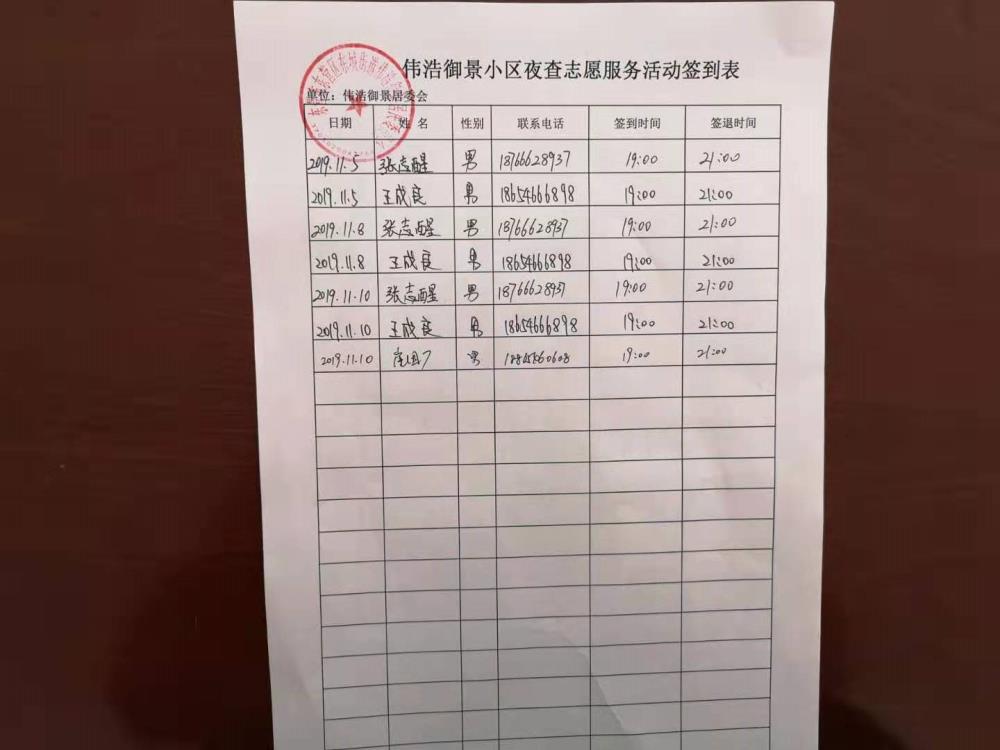 伟浩御景小区夜查志愿服务活动签到表
单位：伟浩御景居委会
日期 姓名 性别 联系电话 签到时间 签退时间
2019.11.5 张志醒 男 18766628937 19:00 21:00
2019.11.5 王成良 男 18654666898 19:00 21:00
2019.11.8 张志醒 男 18766628937 19:00 21:00
2019.11.8 王成良 男 18654666898 19:00 21:00
2019.11.10 张志醒 男 18766628937 19:00 21:00
2019.11.10 王成良 男 18654666898 19:00 21:00
2019.11.10 男 19:00 21:00